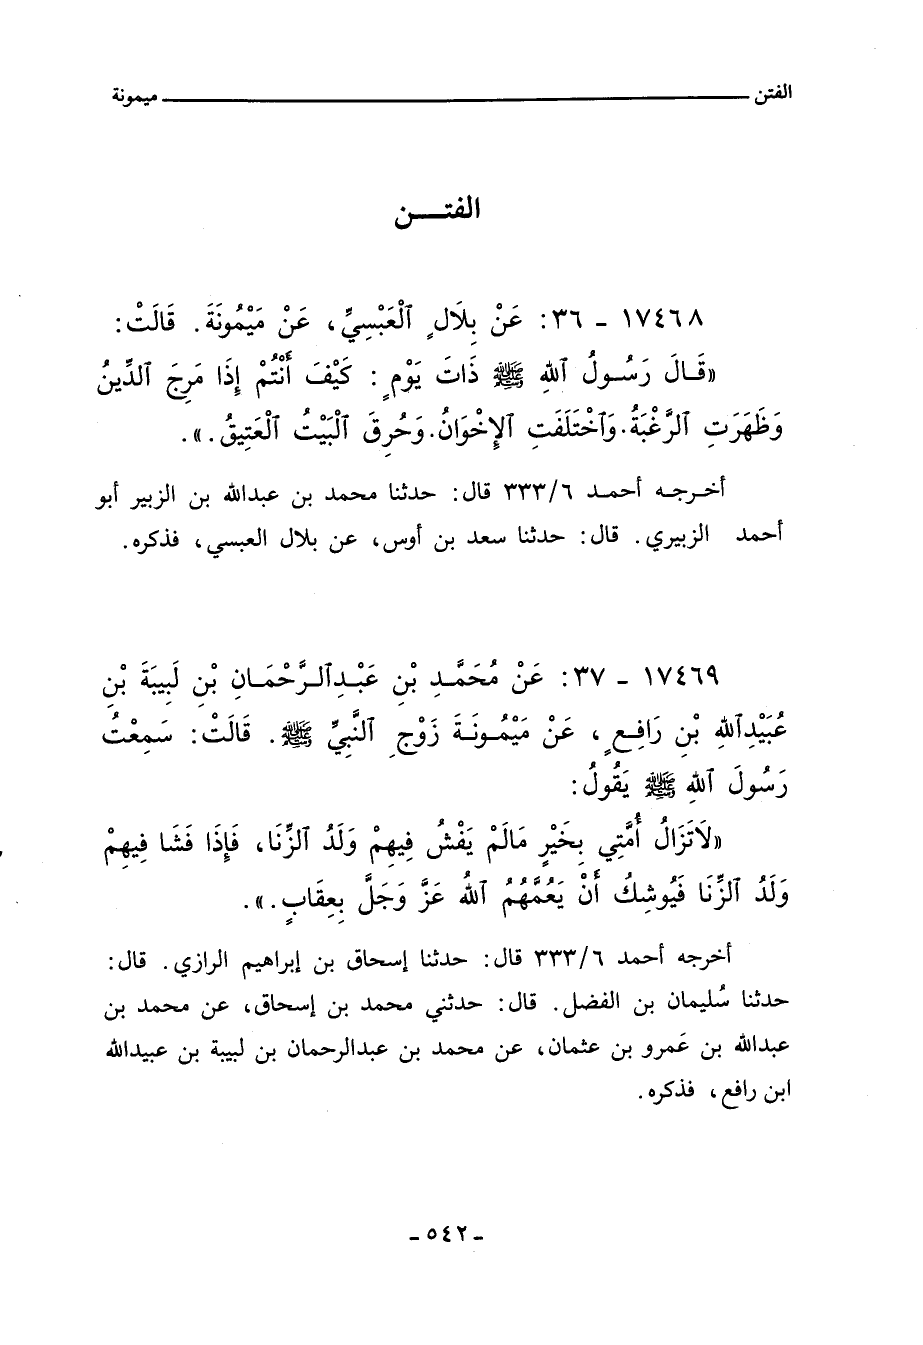 الفتن ميمونة
الفتـــن
١٧٤٦٨ - ٣٦: عَنْ بِلَالٍ ٱلْعَبْسِيِّ، عَنْ مَيْمُونَةَ. قَالَتْ:
«قَـالَ رَسُـولُ ٱللهِ ﷺ ذَاتَ يَوْمٍ: كَيْفَ أَنْتُمْ إِذَا مَرِجَ ٱلدِّينُ
وَظَهَرَتِ ٱلرَّغْبَةُ. وَٱخْتَلَفَتِ ٱلإِخْوَانُ. وَحُرِقَ ٱلْبَيْتُ ٱلْعَتِيقُ.».
أخـرجـه أحمـد ٣٣٣/٦ قال: حدثنا محمد بن عبدالله بن الزبير أبو
أحمد الزبيري. قال: حدثنا سعد بن أوس، عن بلال العبسي، فذكره.
١٧٤٦٩ - ٣٧: عَنْ مُحَمَّـدِ بْنِ عَبْـدِٱلـرَّحْمَـانِ بْنِ لَبِيبَةَ بْنِ
عُبَيْدِٱللهِ بْنِ رَافِـعٍ، عَنْ مَيْمُـونَـةَ زَوْجِ ٱلنَّبِيِّ ﷺ. قَالَتْ: سَمِعْتُ
رَسُولَ ٱللهِ ﷺ يَقُولُ:
«لَاتَزَالُ أُمَّتِي بِخَيْرٍ مَالَمْ يَفْشُ فِيهِمْ وَلَدُ ٱلزِّنَا، فَإِذَا فَشَا فِيهِمْ
وَلَدُ ٱلزِّنَا فَيُوشِكُ أَنْ يَعُمَّهُمُ ٱللهُ عَزَّ وَجَلَّ بِعِقَابٍ.».
أخرجه أحمد ٣٣٣/٦ قال: حدثنا إسحاق بن إبراهيم الرازي. قال:
حدثنا سُليمان بن الفضل. قال: حدثني محمد بن إسحاق، عن محمد بن
عبدالله بن عَمرو بن عثمان، عن محمد بن عبدالرحمان بن لبيبة بن عبيدالله
ابن رافع، فذكره.
- ٥٤٢ -